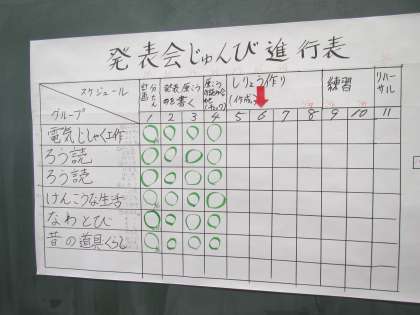 発表会じゅんび進行表
スケジュール
グループ
計画
分たん
発表原こうを書く
原こう
チェック
しりょう作り
(作成)
練習
リハーサル
1 2 3 4 5 6 7 8 9 10 11
電気じしゃく工作
ろう読
ろう読
けんこうな生活
なわとび
昔の道具くらし